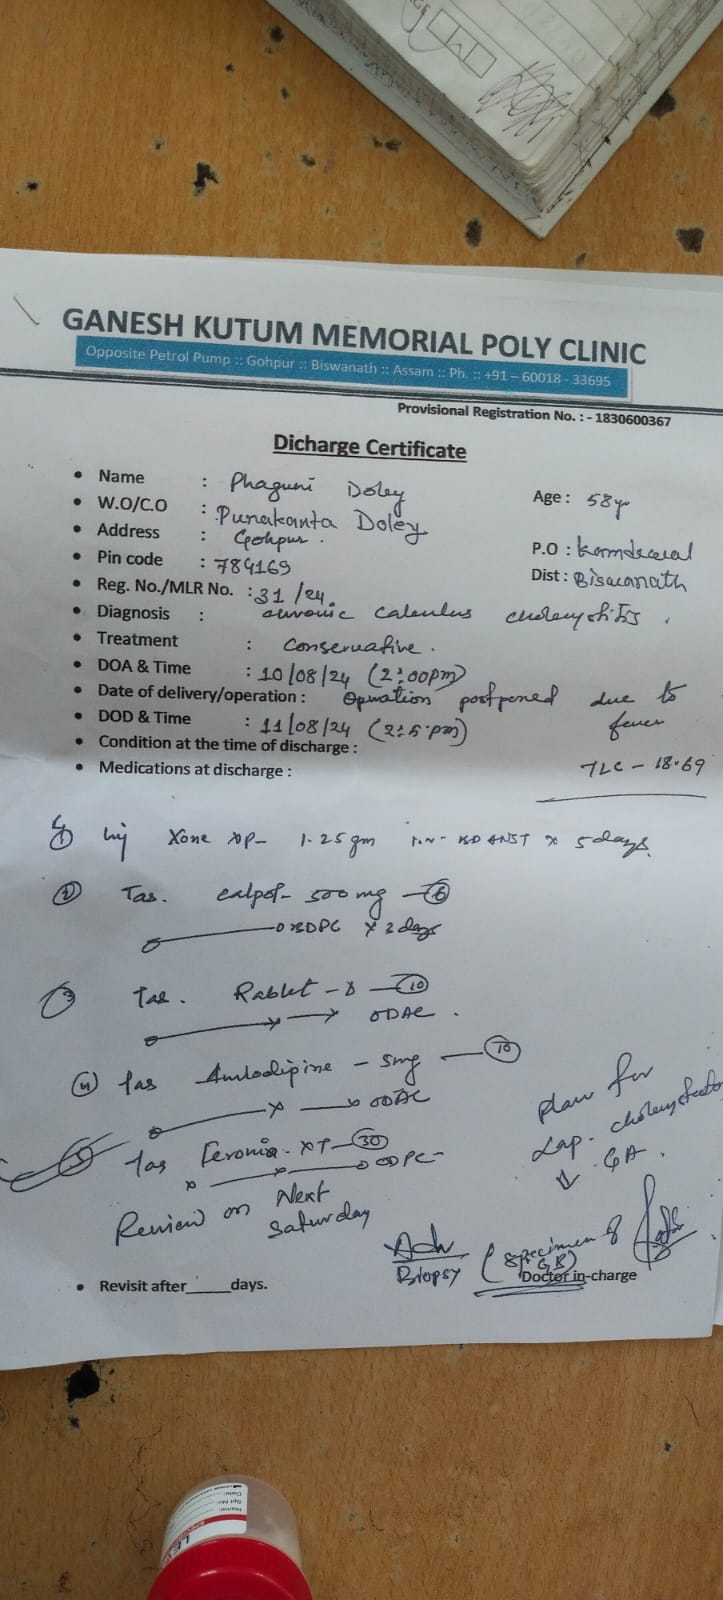 GANESH KUTUM MEMORIAL POLY CLINIC
Opposite Petrol Pump :: Gohpur :: Biswanath :: Assam :: Ph. :: +91 – 60018 - 33695
Provisional Registration No. : - 1830600367
Dicharge Certificate
• Name : Phaguni Doley Age : 58yr
• W.O/C.O : Punakanta Doley
• Address : Gohpur. P.O : 
• Pin code : 784169 Dist : Biswanath
• Reg. No./MLR No. : 31/24.
• Diagnosis : chronic calculus cholecystitis.
• Treatment : Conservative.
• DOA & Time : 10/08/24 (2:00pm)
• Date of delivery/operation : Operation postponed due to fever
• DOD & Time : 11/08/24
• Condition at the time of discharge :
• Medications at discharge : TLC – 18.69
① Inj Xone XP – 1.25gm I.V – BD ANST x 5 days.
② Tab. Calpol – 500mg – ⑥
BDPC x 3 days
③ Tab. Rablet – D – ⑩
ODAC.
④ Tab Amlodipine – 5mg – ⑩
ODAC
⑤ Tab Feronia – XT – ㉚
ODPC
Plan for
Lap. cholecystectomy
GA.
Review on Next
Saturday
Adv
Biopsy (specimen of
GB)
• Revisit after_____days. Doctor in-charge